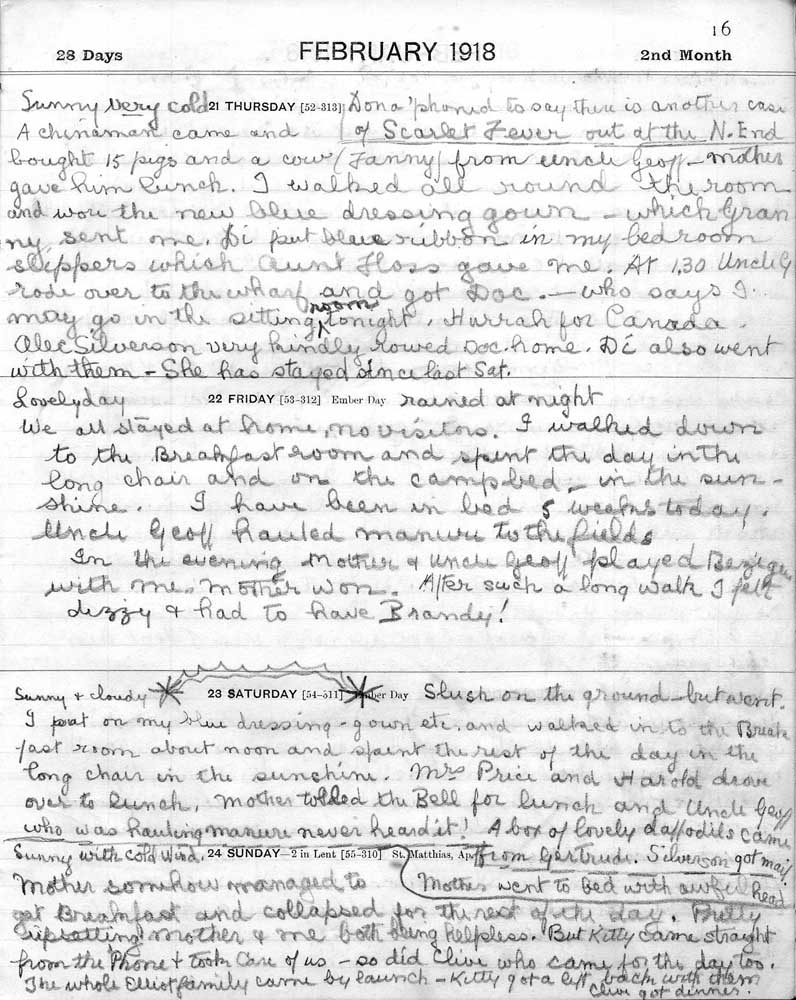 16
28 Days FEBRUARY 1918 2nd Month
Sunny very cold 21 THURSDAY [52-313] Dona 'phoned to say there is another case
A chinaman came and of Scarlet Fever out at the N. End
bought 15 pigs and a cow (Fanny) from Uncle Geoff - mother
gave him lunch. I walked all round the room
and wore the new blue dressing gown - which Gran
ny sent me. Di put blue ribbon in my bedroom
slippers which Aunt Floss gave me. At 1.30 Uncle G
rode over to the wharf and got Doc. - who says I
may go in the sitting room tonight. Hurrah for Canada.
Alec Silverson very kindly rowed Doc. home. Di also went
with them - She has stayed since last Sat.
Lovely day 22 FRIDAY [53-312] Ember Day rained at night
We all stayed at home, no visitors. I walked down
to the Breakfast room and spent the day in the
long chair and on the campbed - in the sun-
shine. I have been in bed 5 weeks today.
Uncle Geoff hauled manure to the fields
In the evening Mother & Uncle Geoff played Bezique
with me. Mother won. After such a long walk I felt
dizzy & had to have Brandy!
Sunny & cloudy 23 SATURDAY [54-311] Ember Day Slush on the ground - but went.
I put on my blue dressing-gown etc. and walked in to the Break
fast room about noon and spent the rest of the day in the
long chair in the sunshine. Mrs Price and Harold drove
over to lunch. Mother tolled the Bell for lunch and Uncle Geoff
who was hauling manure never heard it! A box of lovely daffodils came
Sunny with cold wind. 24 SUNDAY—2 in Lent [55-310] St. Matthias, Ap. from Gertrude. Silverson got mail
Mother somehow managed to Mother went to bed with awful head
get Breakfast and collapsed for the rest of the day. Pretty
upsetting mother & me both being helpless. But Kitty came straight
from the Phone & took care of us - so did Clive who came for the day too.
The whole Elliot family came by launch - Kitty got a lift back with them
Clive got dinner.